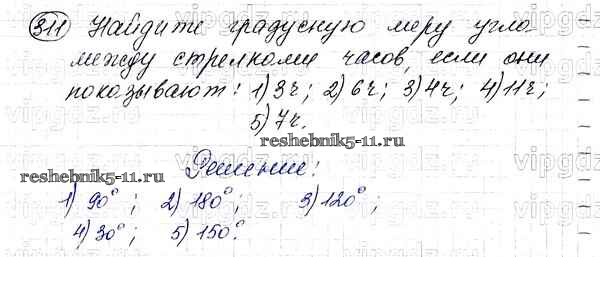 311 Найдите градусную меру угла
между стрелками часов, если они
показывают: 1) 3ч; 2) 6ч; 3) 4ч; 4) 11ч;
5) 7ч.
reshebnik5-11.ru
Решение:
reshebnik5-11.ru
1) 90°; 2) 180°; 3) 120°;
4) 30°; 5) 150°.